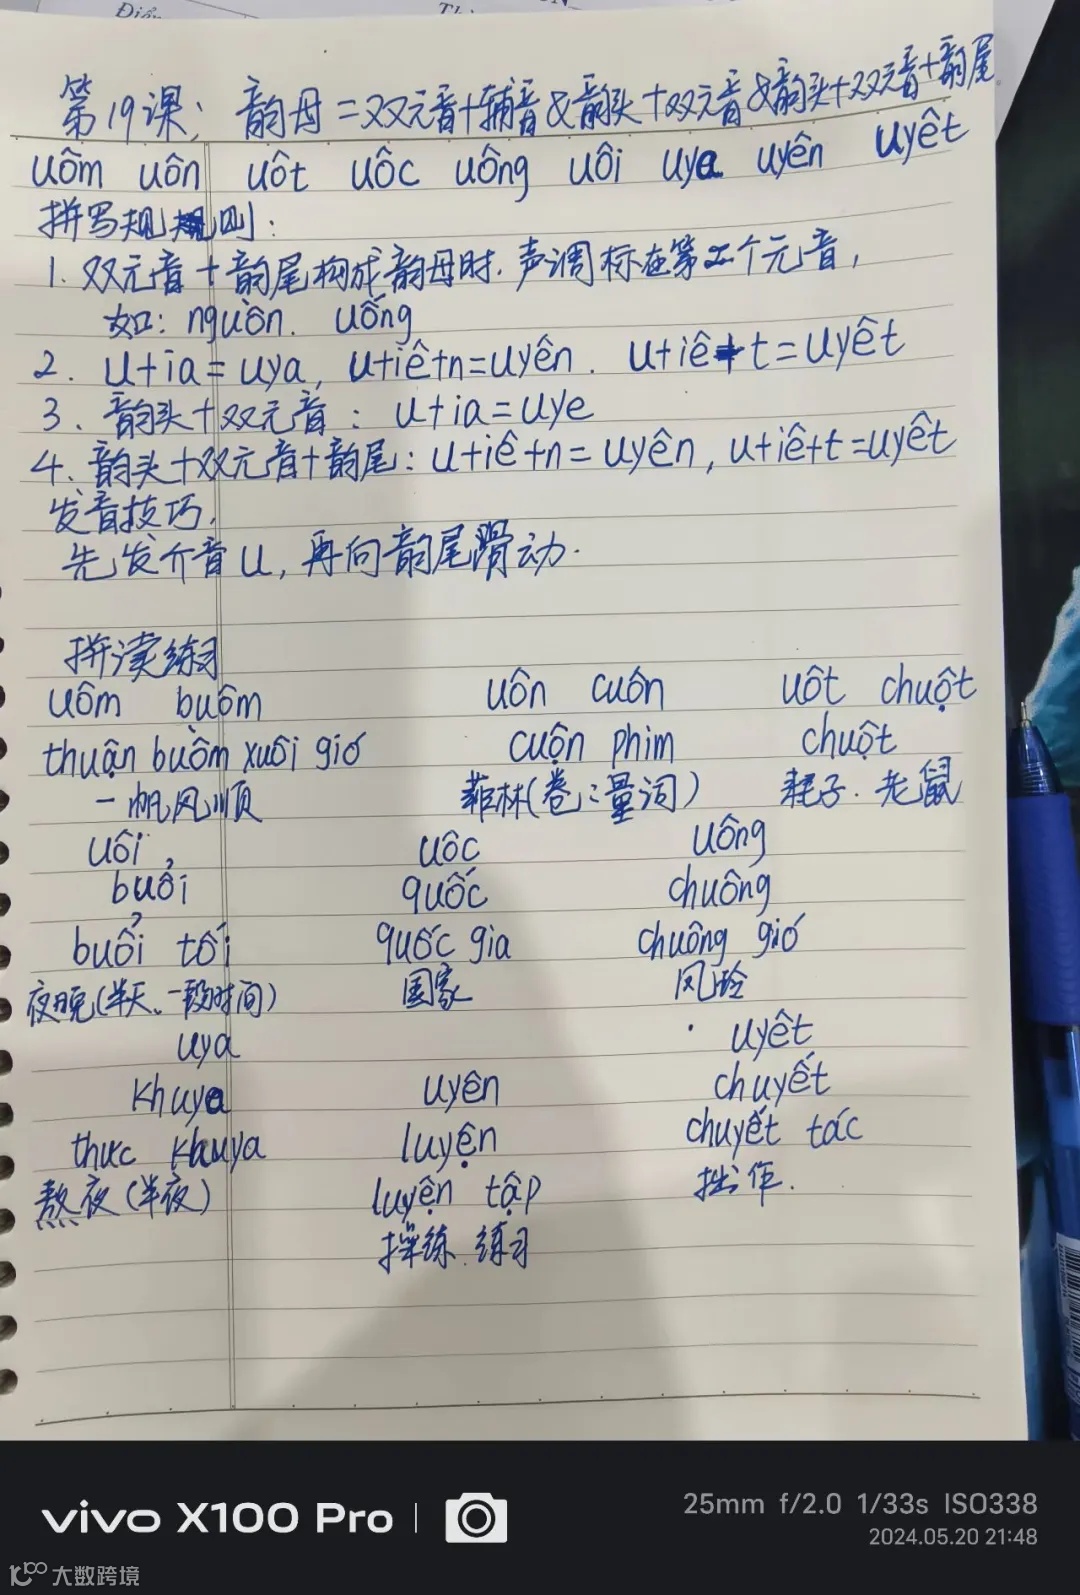 Điểm
第19课；韵母=双元音+辅音&韵头+双元音&韵头+双元音+韵尾
uôm uôn uôt uôc uông uôi uya uyên uyêt
拼写规则：
1. 双元音+韵尾构成韵母时，声调标在第二个元音，
如：nguồn. uống
2. u+ia=uya, u+iê+n=uyên. u+iê+t=uyêt
3、韵头+双元音：u+ia=uye
4、韵头+双元音+韵尾：u+iê+n=uyên, u+iê+t=uyêt
发音技巧，
先发介音u，再向韵尾滑动.
拼读练习
uôm buôm uôn cuôn uôt chuột
thuận buồm xuôi gió cuộn phim chuột
一帆风顺 菲林(卷：量词) 耗子、老鼠
uôi uôc uông
buổi quốc chuông
buổi tối quốc gia chuông gió
夜晚(半天、一段时间) 国家 风玲
uya uyêt
khuya uyên chuyết
thưc khuya luyện chuyết tác
熬夜(半夜) luyện tập 拙作.
操练、练习
vivo X100 Pro 25mm f/2.0 1/33s ISO338
2024.05.20 21:48
大数跨境